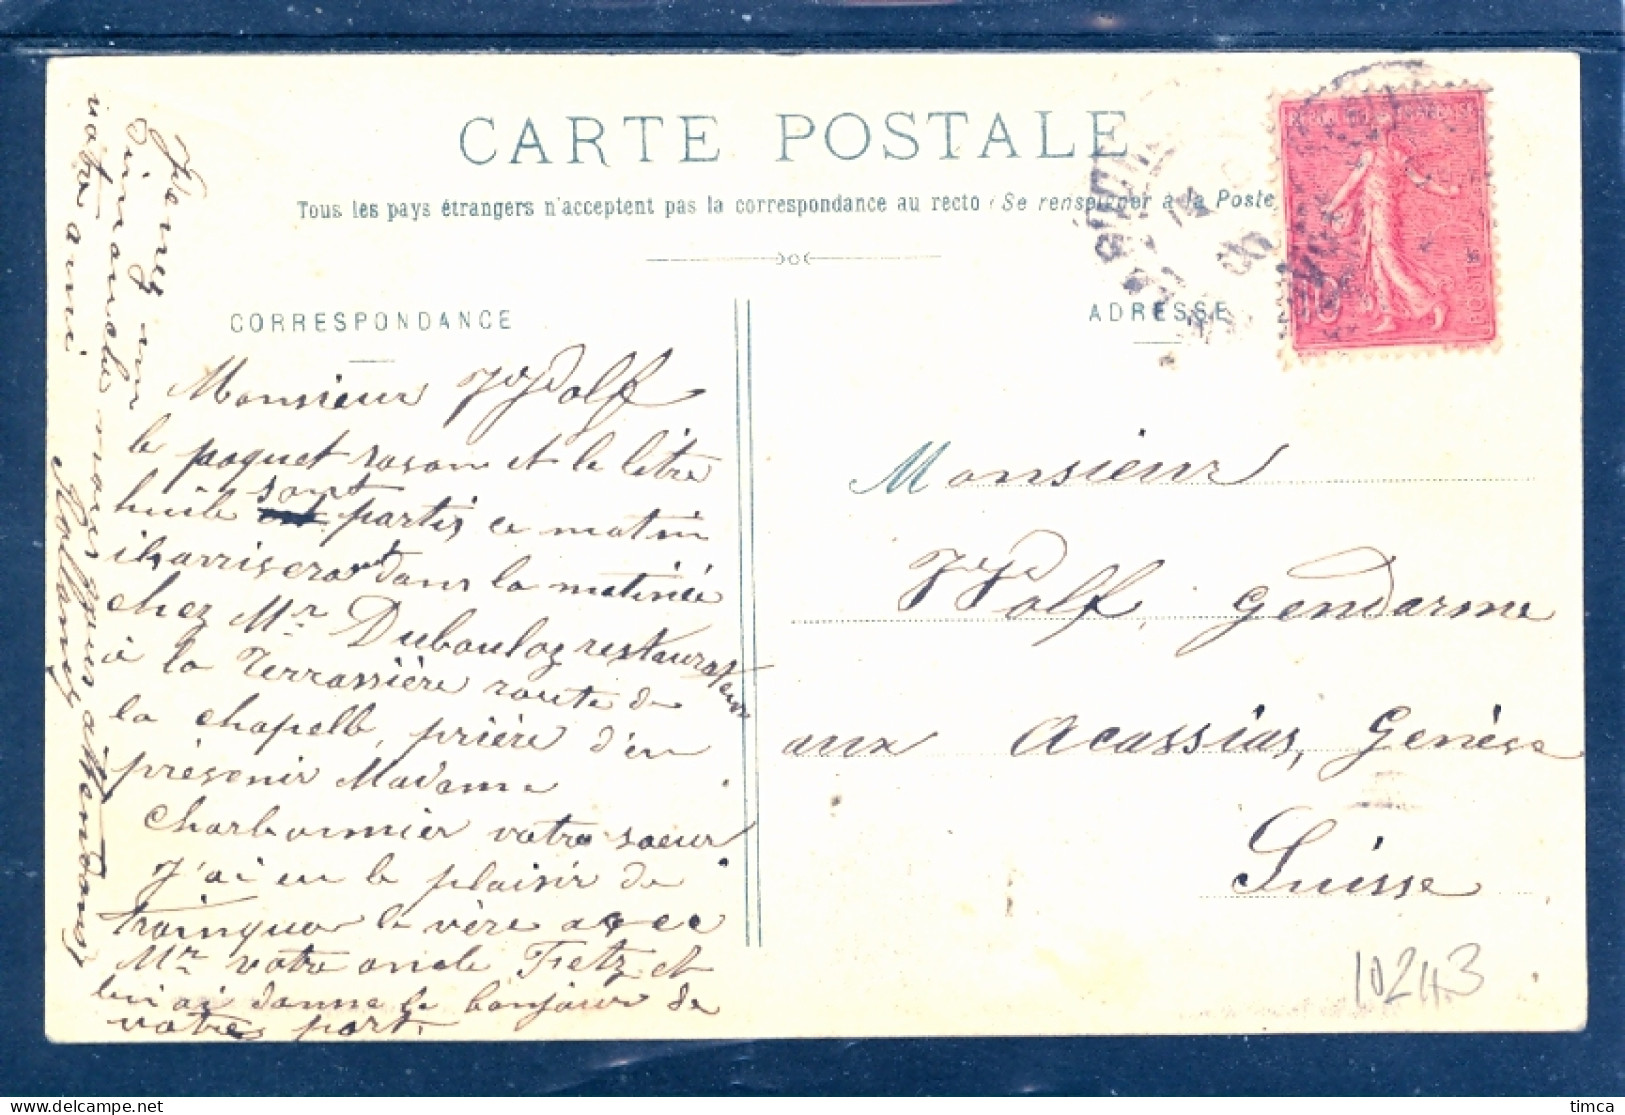 CARTE POSTALE
Tous les pays étrangers n'acceptent pas la correspondance au recto (Se renseigner à la Poste
CORRESPONDANCE
ADRESSE
Monsieur Wolf
le paquet savon et le litre
huile sont partis ce matin
ils arriveront dans la matinée
chez Mr Dubouloz restaurateur
à la Terrassière route de
la chapelle, prière d'en
prévenir Madame
Charbonnier votre soeur
J'ai eu le plaisir de
trainquer le vère avec
Mr votre oncle Fetz et
lui ai donné le bonjour de
votres part.
Venez un
Dimanche nous vous attendons
votre ami
Monsieur
Wolf, gendarme
aux Acassias, Genève
Suisse
10243
REPUBLIQUE FRANÇAISE
POSTES
10
timca